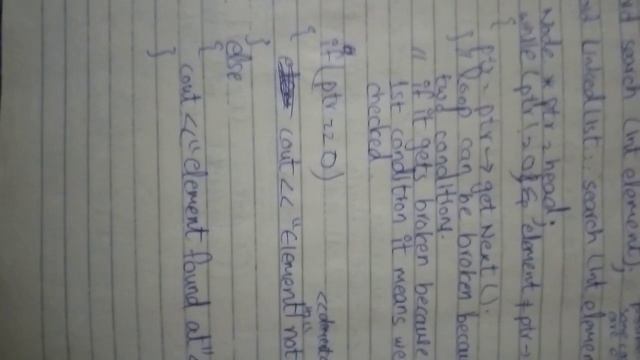 search (int element);
LinkedList :: search (int eleme
Node * ptr = head;
while (ptr != 0 && element ≠ ptr→
{
ptr = ptr → get Next ();
} // Loop can be broken becau
two condition.
// if it gets broken because
1st condition it means we
checked
if (ptr == 0)
{ cout << "Element not
}
else
{
cout << "element found at" <
}